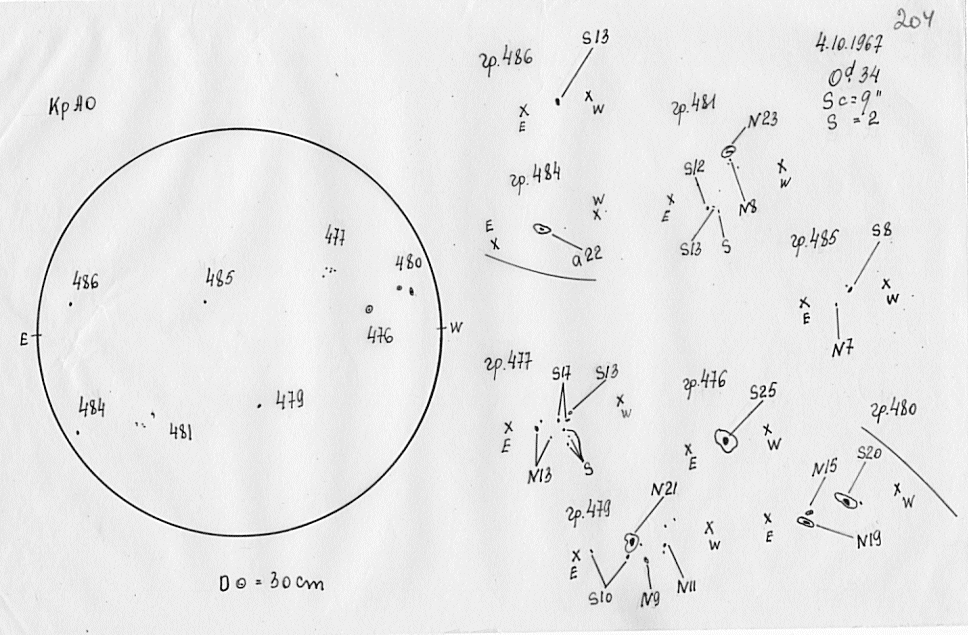 204
4.10.1967
Od 34
Sc=9"
S = 2
КрАО
477
480
486
485
476
E
W
484
479
481
D⊙ = 30cm
гр.486
S13
X
E
X
W
гр.481
N23
S12
X
W
X
E
N8
S13
S
гр.484
W
X
E
X
a22
гр.485
S8
X
W
X
E
N7
гр.477
S17
S13
X
W
X
E
N13
S
гр.476
S25
X
W
X
E
гр.480
S20
N15
X
W
X
E
N19
гр.479
N21
X
W
X
E
S10
N9
N11